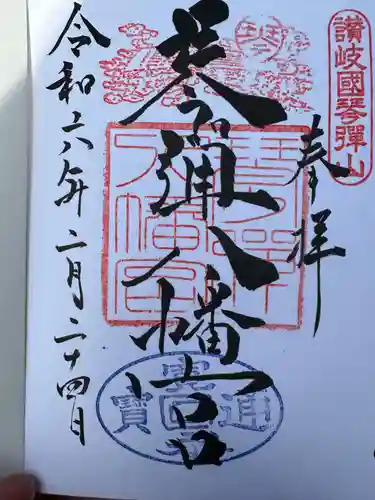 讃岐國琴彈山
奉拝
琴弾八幡宮
令和六年二月二十四日
琴彈八幡宮